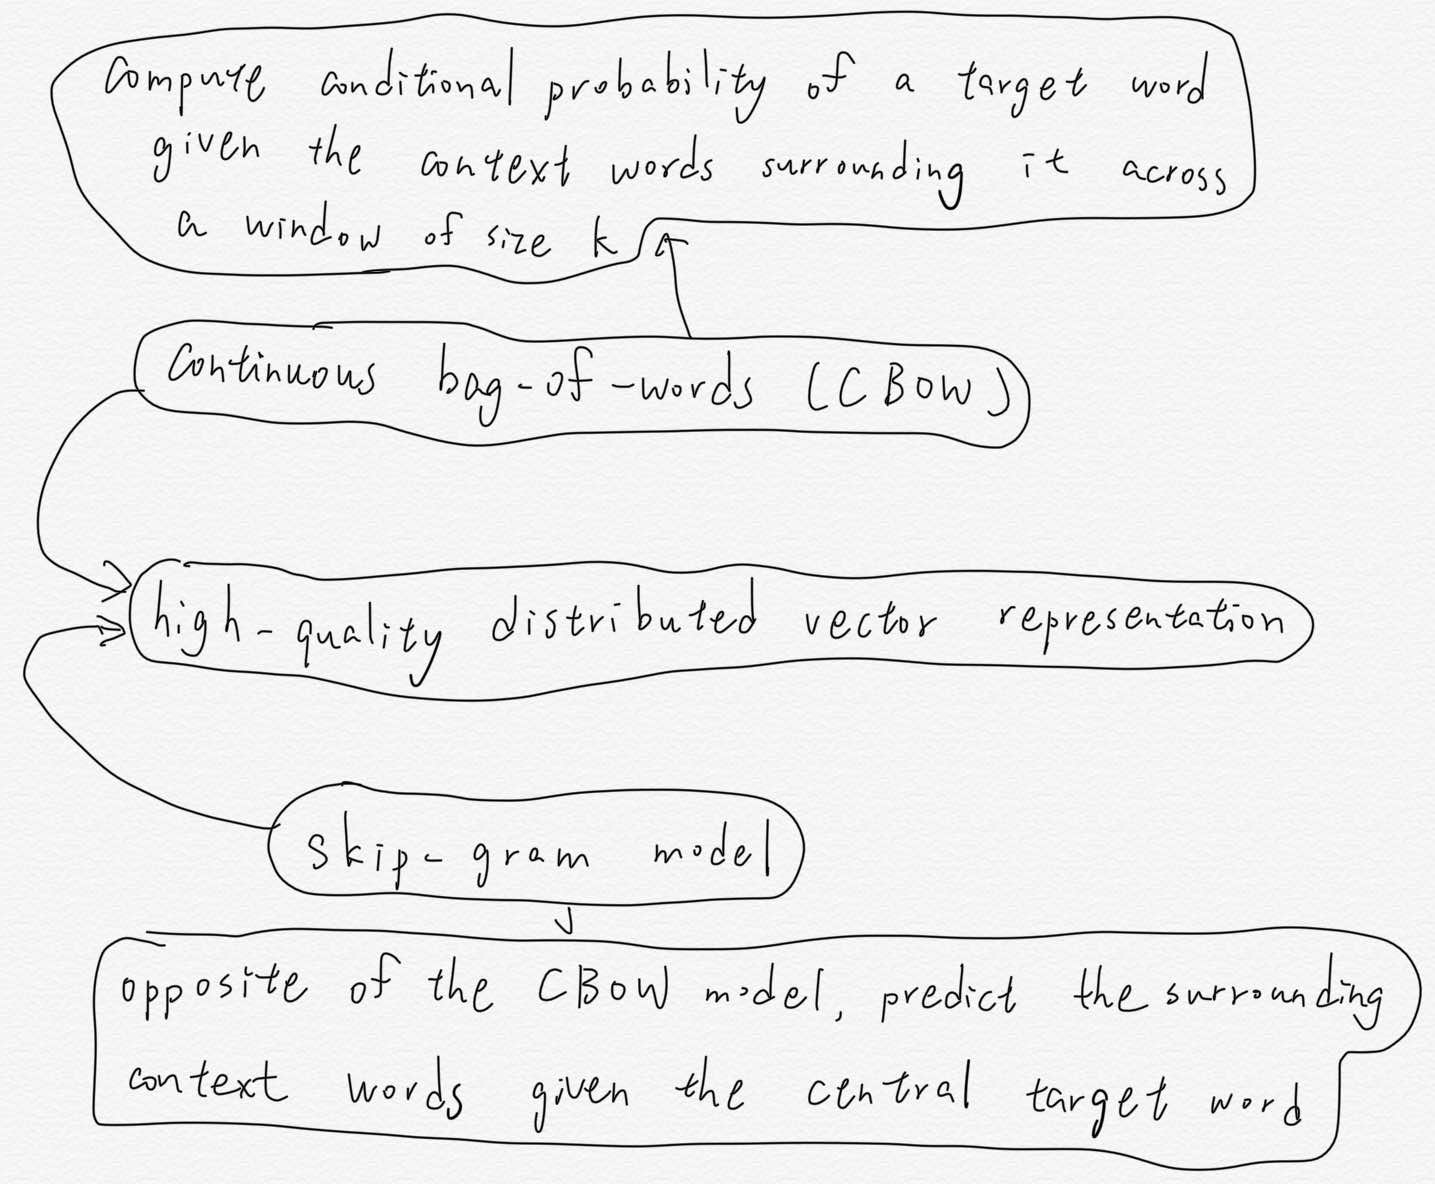 Compute conditional probability of a target word
given the context words surrounding it across
a window of size k
Continuous bag-of-words (CBOW)
high-quality distributed vector representation
skip-gram model
opposite of the CBOW model, predict the surrounding
context words given the central target word